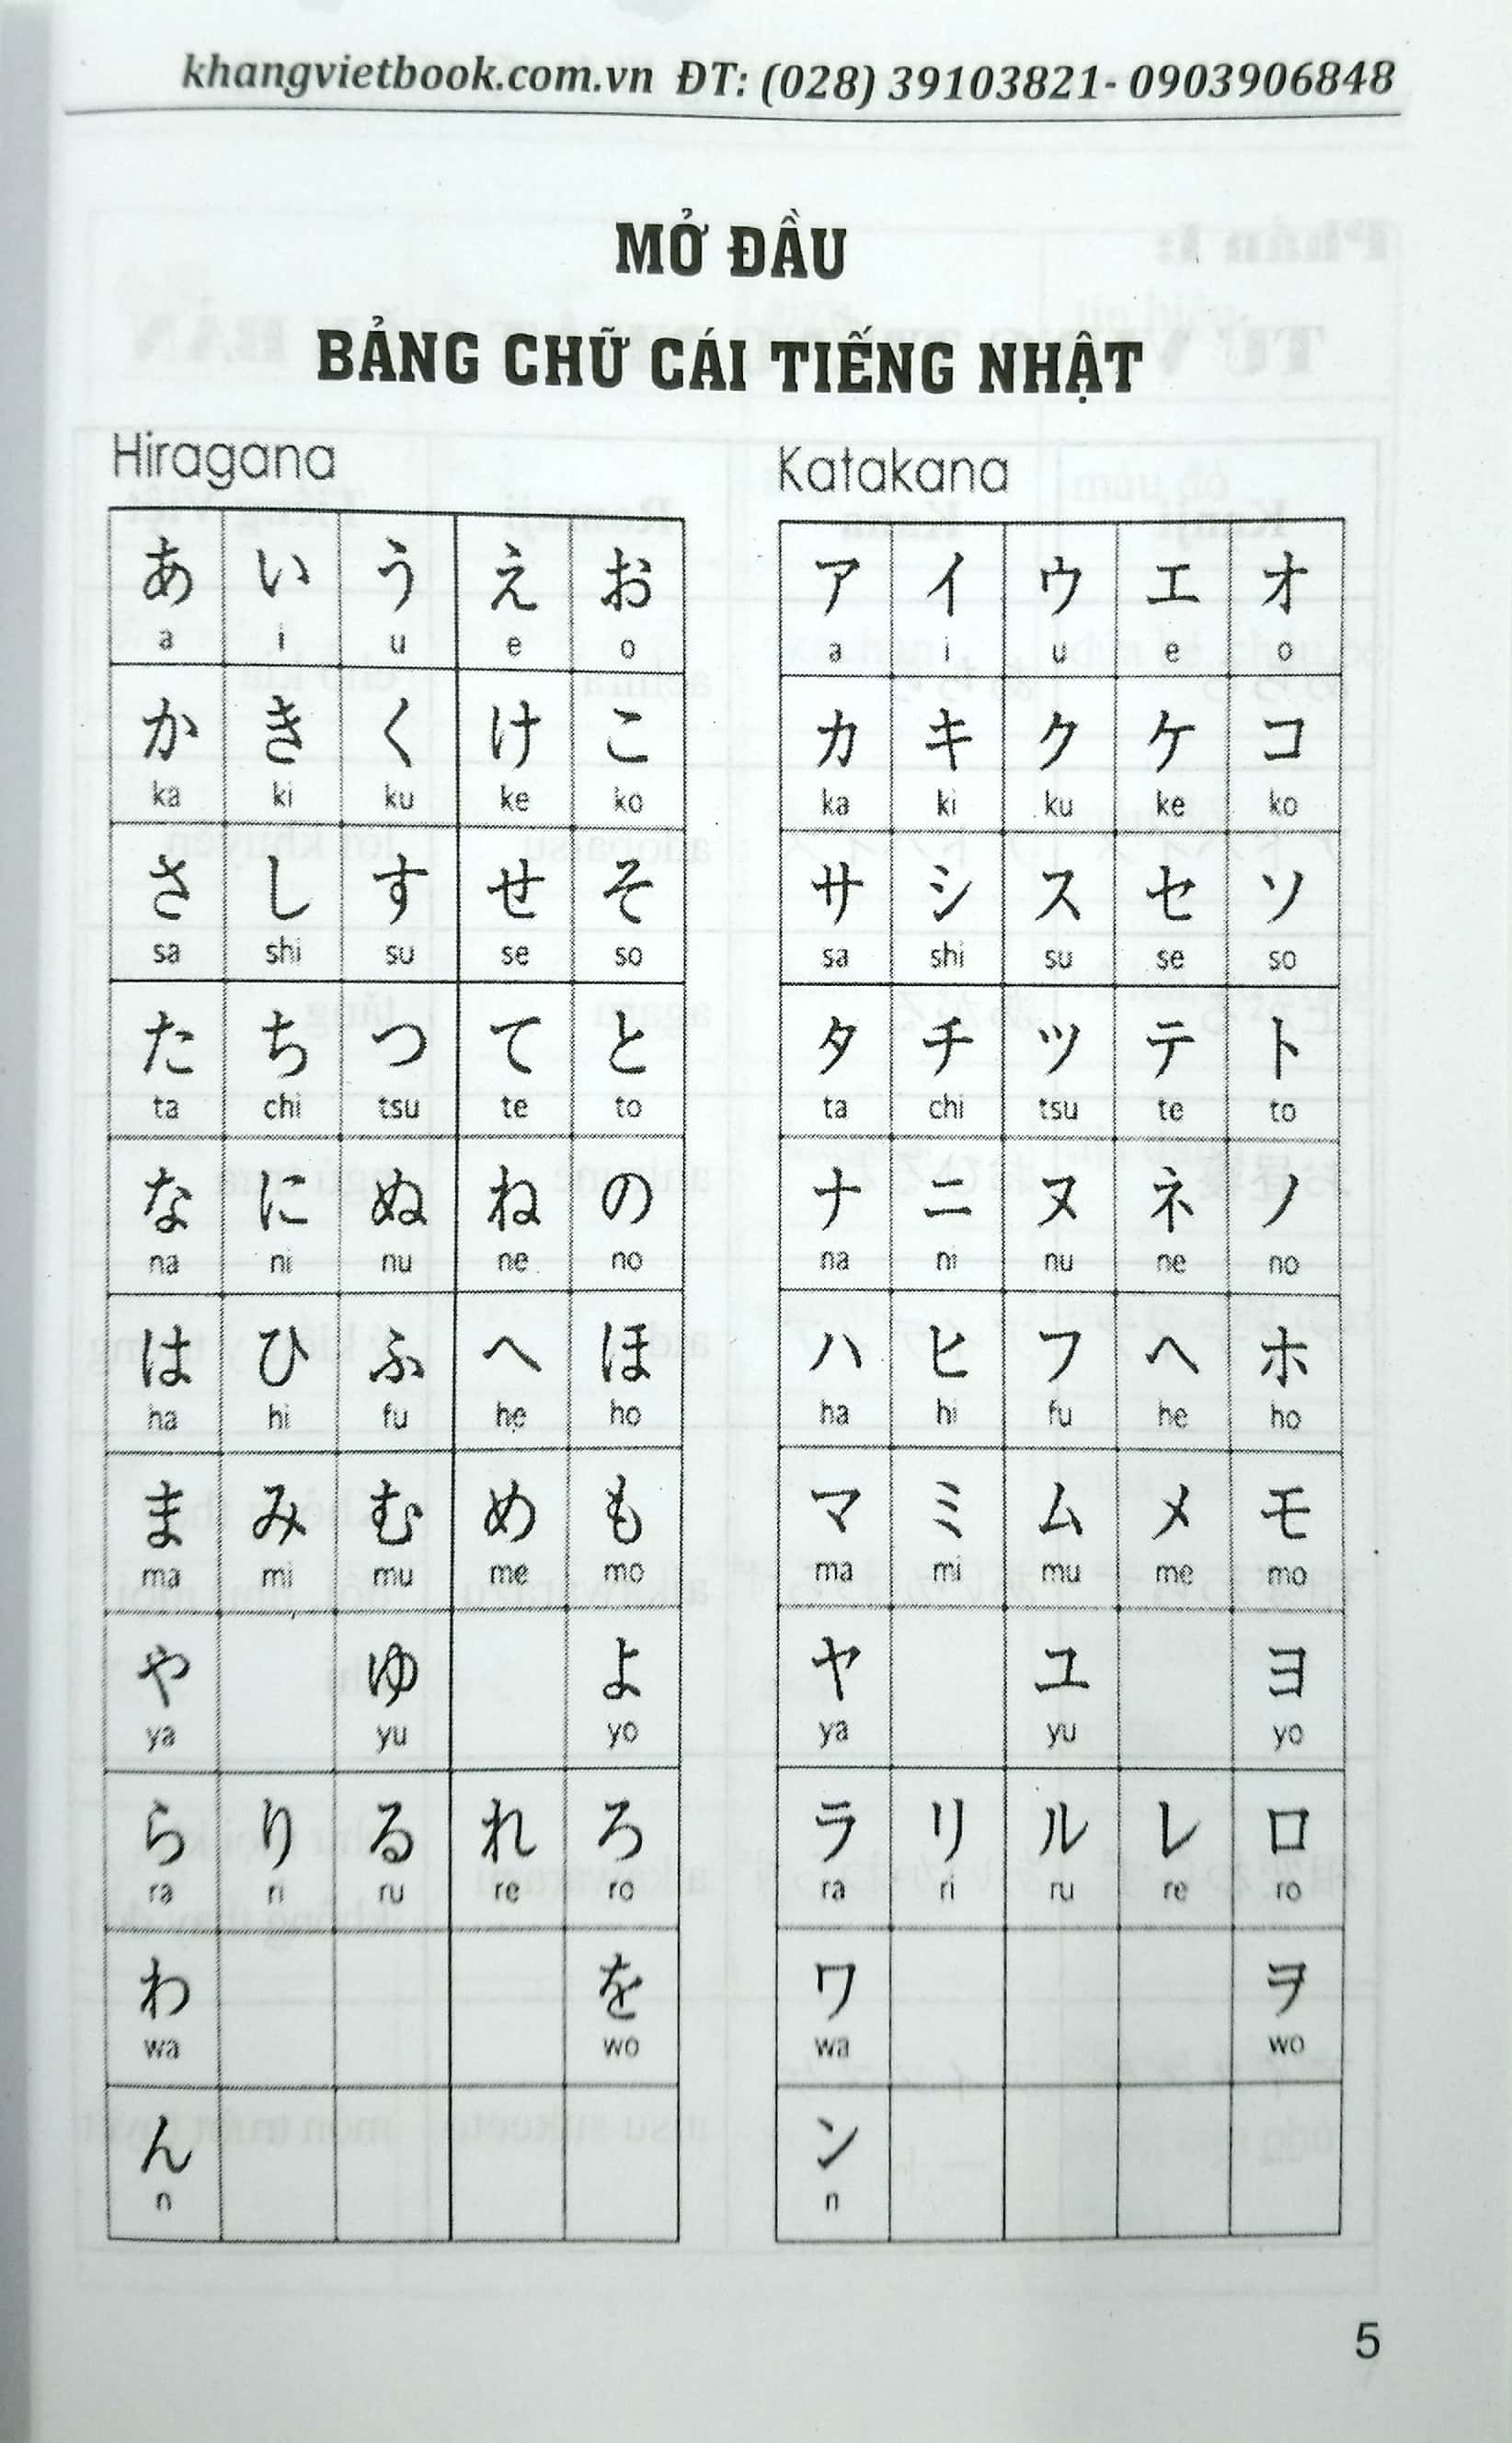 khangvietbook.com.vn ĐT: (028) 39103821- 0903906848
MỞ ĐẦU
BẢNG CHỮ CÁI TIẾNG NHẬT
Hiragana
あ い う え お
a i u e o
か き く け こ
ka ki ku ke ko
さ し す せ そ
sa shi su se so
た ち つ て と
ta chi tsu te to
な に ぬ ね の
na ni nu ne no
は ひ ふ へ ほ
ha hi fu he ho
ま み む め も
ma mi mu me mo
や ゆ よ
ya yu yo
ら り る れ ろ
ra ri ru re ro
わ を
wa wo
ん
n
Katakana
ア イ ウ エ オ
a i u e o
カ キ ク ケ コ
ka ki ku ke ko
サ シ ス セ ソ
sa shi su se so
タ チ ツ テ ト
ta chi tsu te to
ナ ニ ヌ ネ ノ
na ni nu ne no
ハ ヒ フ ヘ ホ
ha hi fu he ho
マ ミ ム メ モ
ma mi mu me mo
ヤ ユ ヨ
ya yu yo
ラ リ ル レ ロ
ra ri ru re ro
ワ ヲ
wa wo
ン
n
5